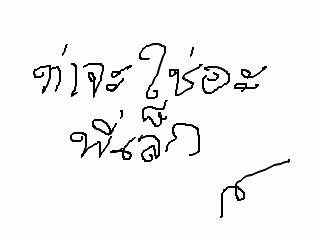 ท่าจะใช่อะ
พี่เล็ก